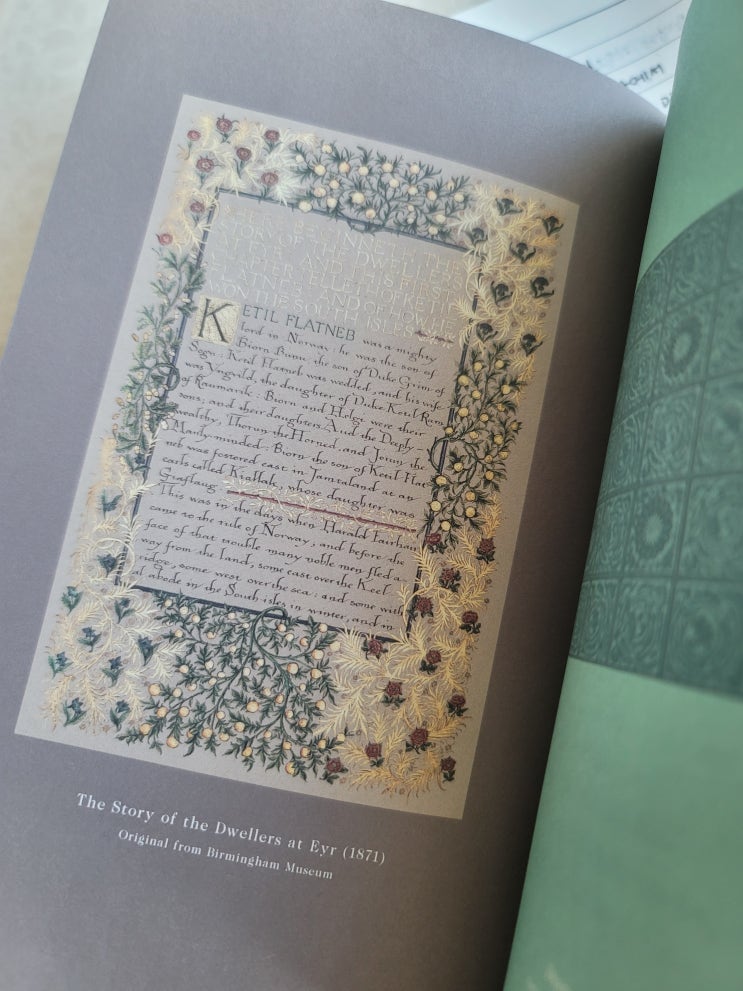 HERE BEGINNETH THE
STORY OF THE DWELLERS
AT EYR AND THIS FIRST
CHAPTER TELLETH OF KETIL
FLATNEB AND OF HOW HE
WON THE SOUTH ISLES
KETIL FLATNEB was a mighty
lord in Norway; he was the son of
Biorn Bunu, the son of Duke Grim of
Sogn: Ketil Flatneb was wedded, and his wife
was Yngvild, the daughter of Duke Ketil Ram
of Raumarik: Biorn and Helgi were their
sons; and their daughters Aud the Deeply-
wealthy, Thorun the Horned, and Jorun the
Manly-minded: Biorn the son of Ketil Flat
neb was fostered east in Jamtaland at an
earls called Kiallak, whose daughter was
Giaflaug.
This was in the days when Harald Fairhair
came to the rule of Norway, and before the
face of that trouble many noble men fled a-
way from the land, some east over the Keel
ridge, some west over the sea: and some with
al abode in the South isles in winter, and in
The Story of the Dwellers at Eyr (1871)
Original from Birmingham Museum